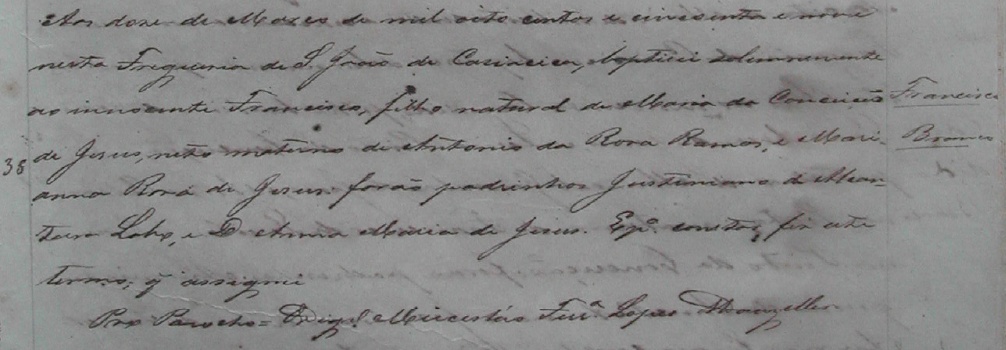 Aos doze de Março de mil oito centos e cincoenta e nove
nesta Freguesia de S. João de Cariacica, baptizei solemnemente
ao innocente Francisco, filho natural de Maria da Conceição
Francisco
de Jesus, neto materno de Antonio da Rosa Ramos, e Mari-
Branco
38
anna Rosa de Jesus. forão padrinhos Justiniano de
Lobo, e D. Anna Maria de Jesus. E pª constar, fiz este
termo, q' assignei
Parocho =